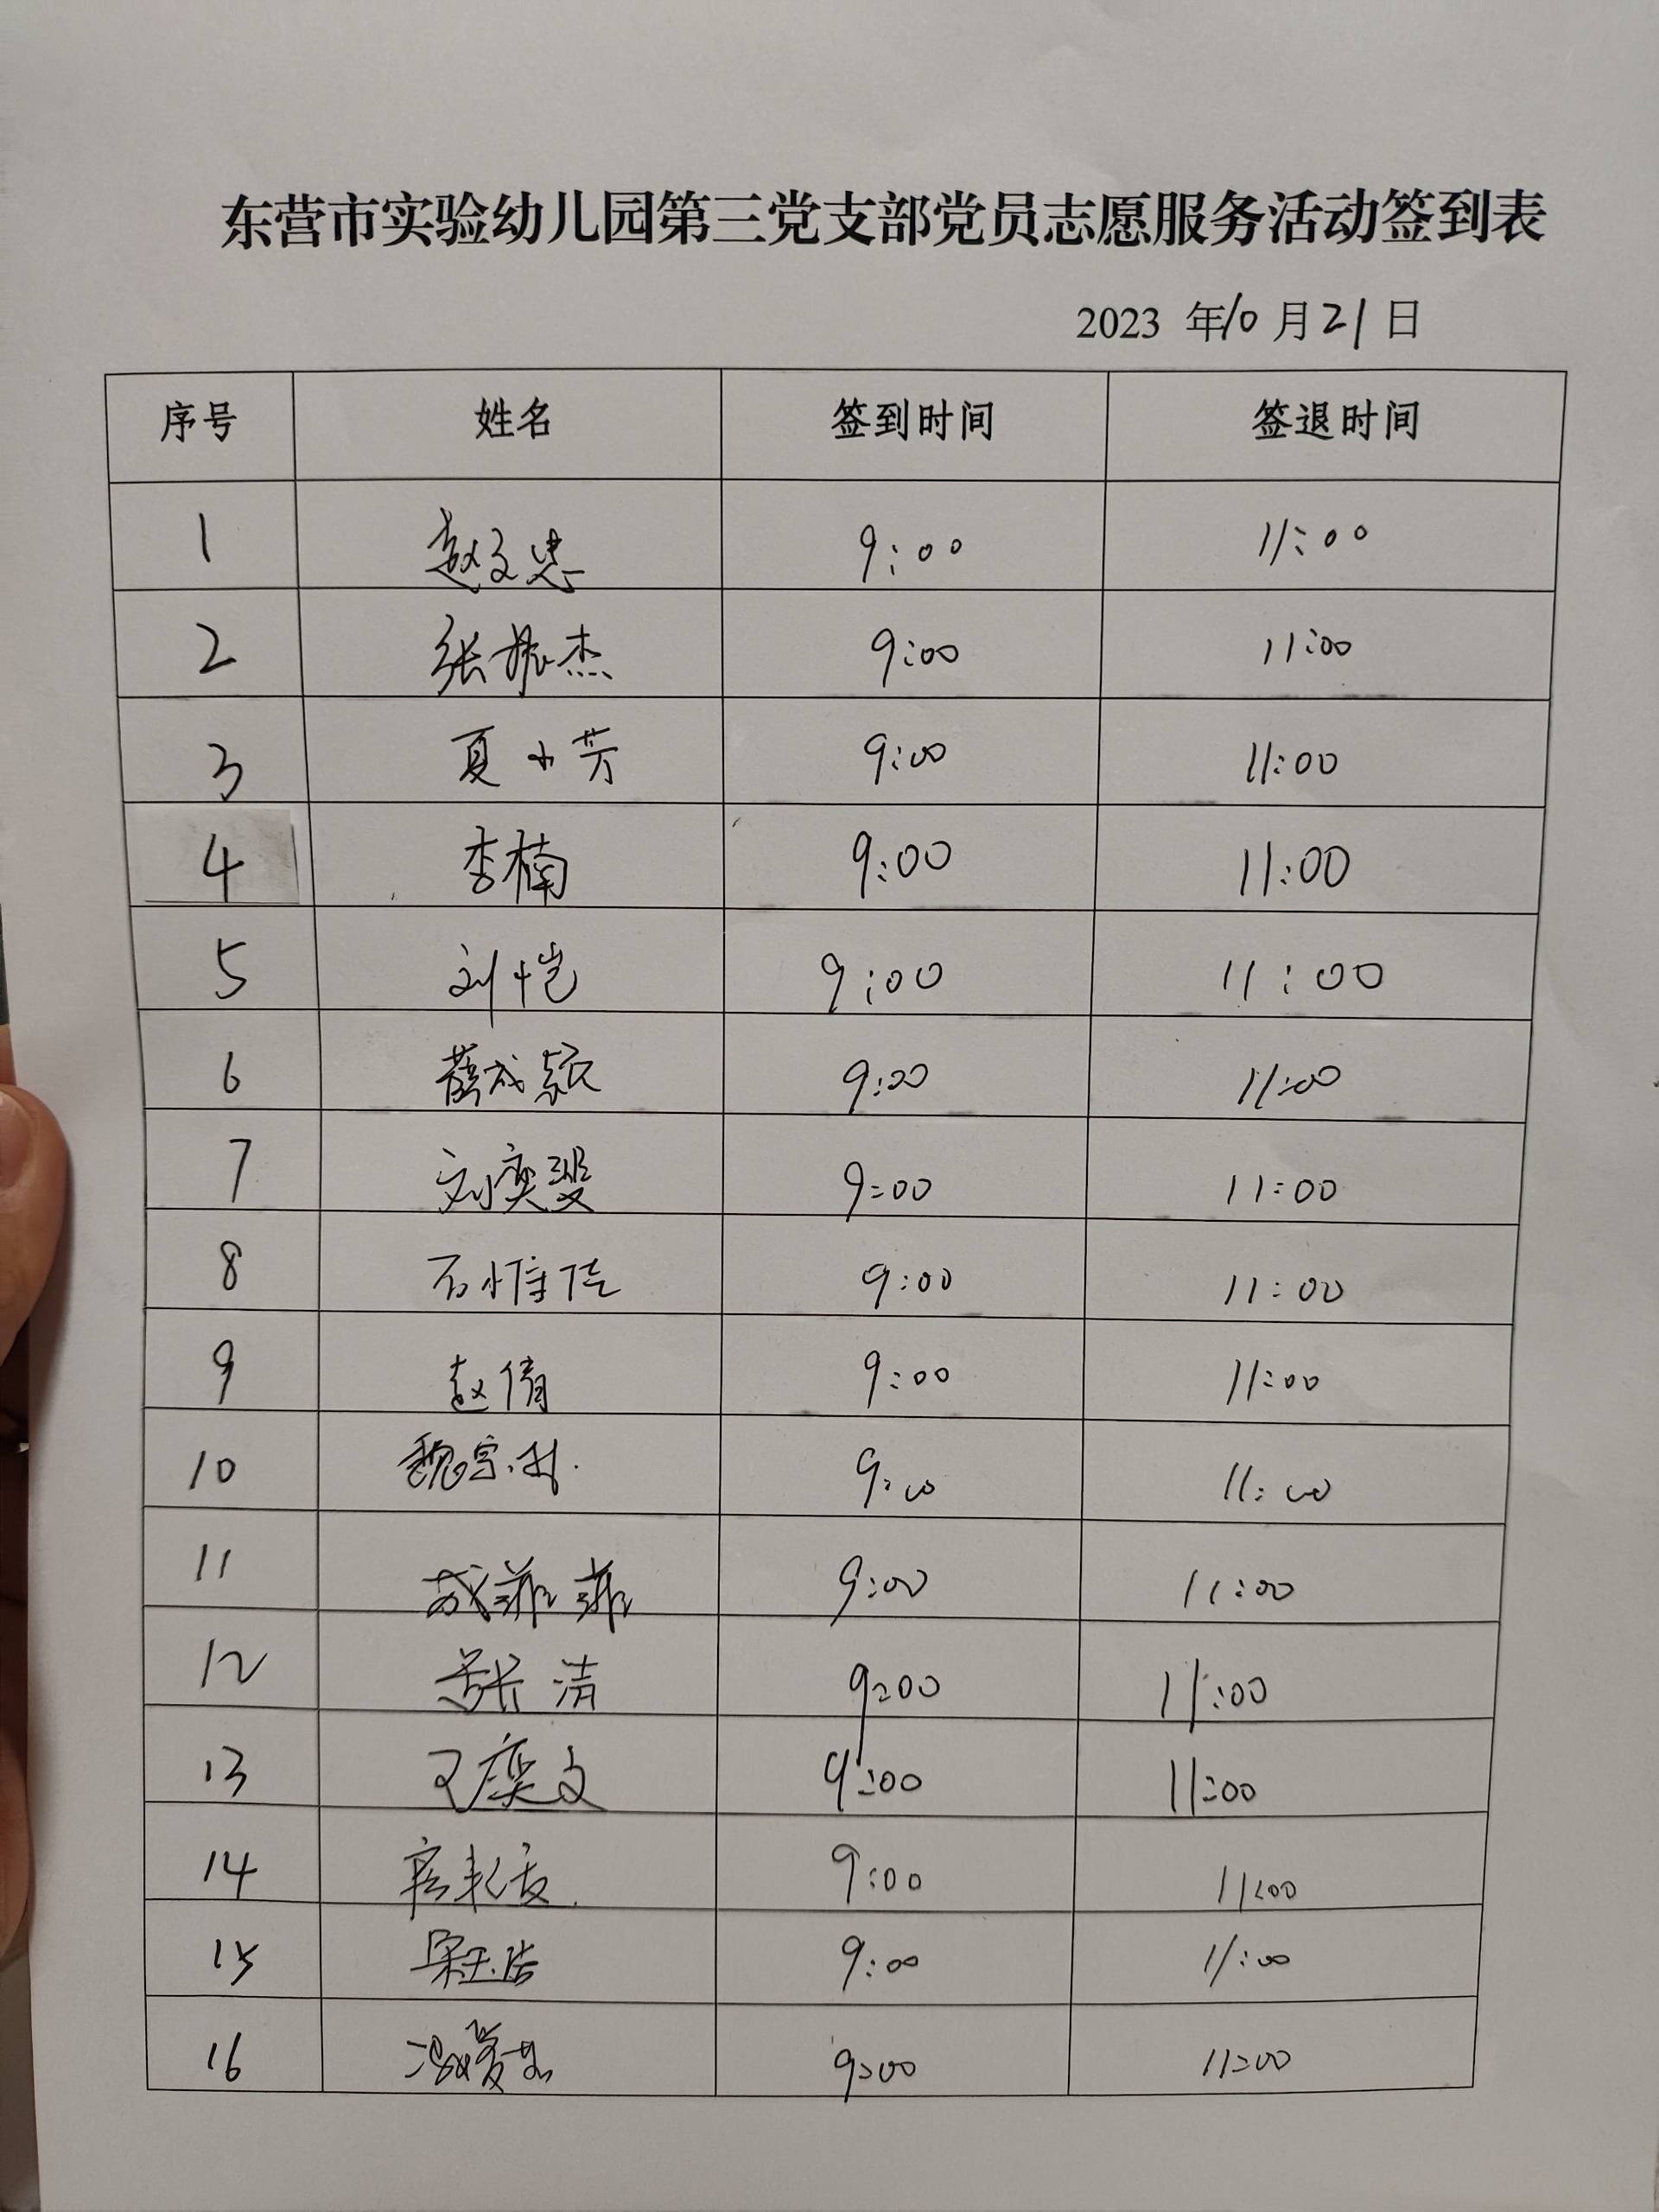 东营市实验幼儿园第三党支部党员志愿服务活动签到表
2023 年10月21日
序号 姓名 签到时间 签退时间
1 赵文忠 9:00 11:00
2 张振杰 9:00 11:00
3 夏小芳 9:00 11:00
4 李楠 9:00 11:00
5 刘恺 9:00 11:00
6 薛成颖 9:00 11:00
7 刘奕斐 9:00 11:00
8 石惟佳 9:00 11:00
9 赵倩 9:00 11:00
10 魏 9:00 11:00
11 成菲菲 9:00 11:00
12 清 9:00 11:00
13 文 9:00 11:00
14 9:00 11:00
15 9:00 11:00
16 冯 9:00 11:00